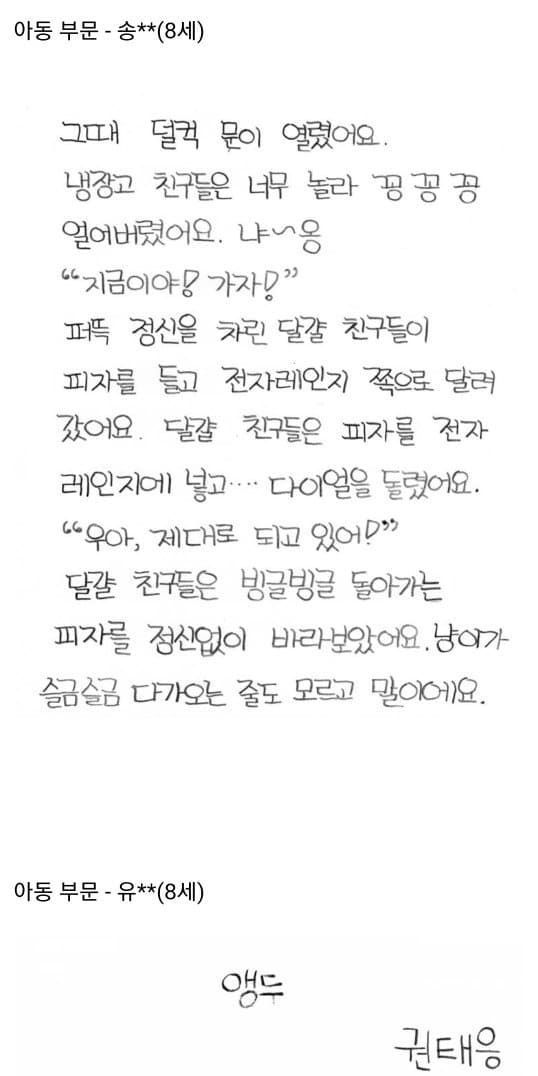 아동 부문 - 송**(8세)
그때 덜컥 문이 열렸어요.
냉장고 친구들은 너무 놀라 꽁 꽁 꽁
얼어버렸어요. 냐~옹
“지금이야! 가자!”
퍼뜩 정신을 차린 달걀 친구들이
피자를 들고 전자레인지 쪽으로 달려
갔어요. 달걀 친구들은 피자를 전자
레인지에 넣고···· 다이얼을 돌렸어요.
“우아, 제대로 되고 있어!”
달걀 친구들은 빙글빙글 돌아가는
피자를 정신없이 바라보았어요. 냥이가
슬금슬금 다가오는 줄도 모르고 말이에요.
아동 부문 - 유**(8세)
앵두
권태응